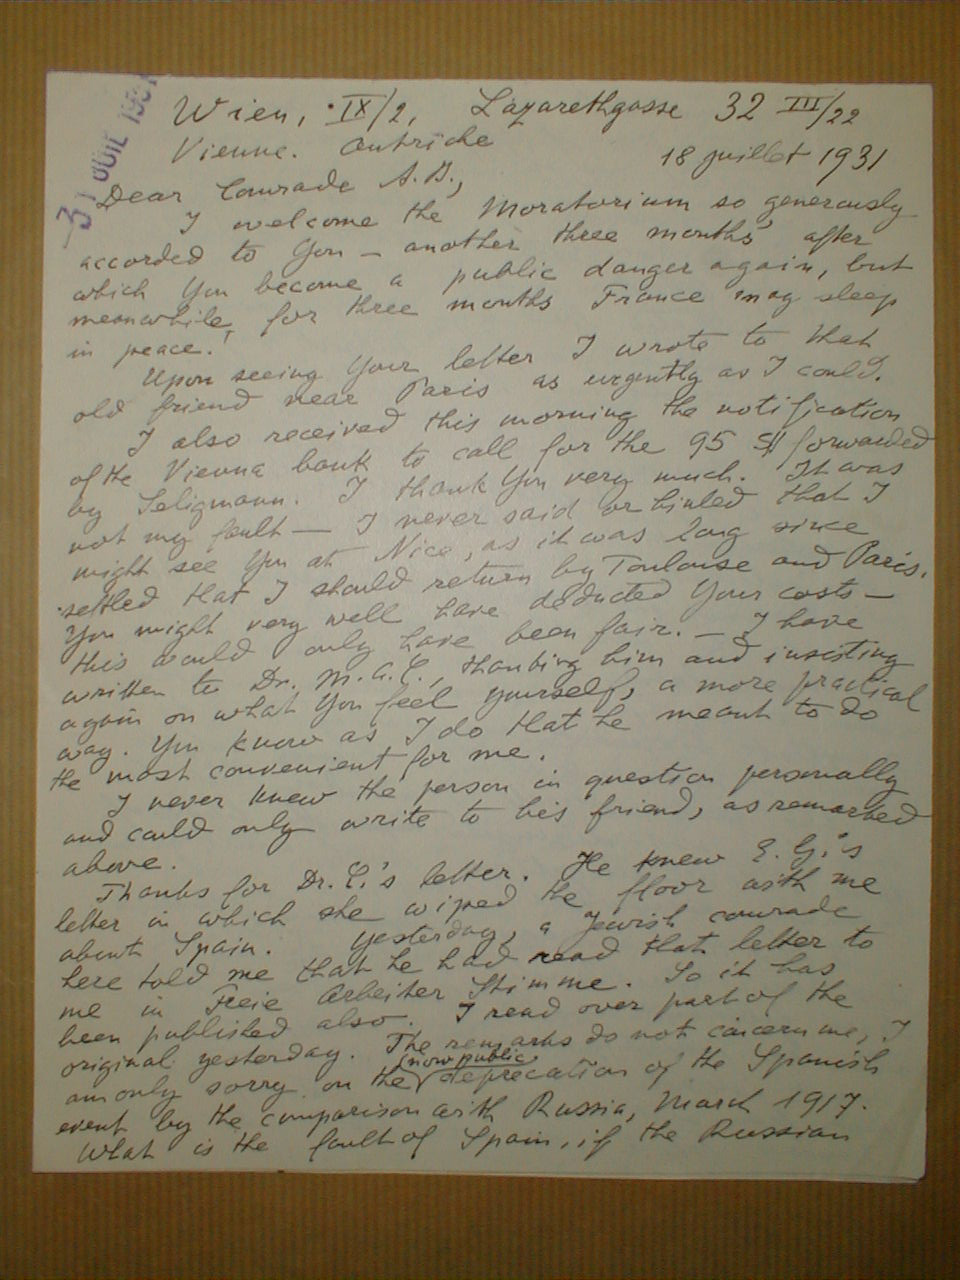 31 JUIL 1931
Wien, IX/2, Lazarethgasse 32 III/22
Vienne. Autriche
18 juillet 1931
Dear Comrade A.B.,
I welcome the Moratorium so generously
accorded to You — another three months' after
which You become a public danger again, but
meanwhile, for three months France may sleep
in peace!
Upon seeing Your letter I wrote to that
old friend near Paris as urgently as I could.
I also received this morning the notification
of the Vienna bank to call for the 95 forwarded
by Seligmann. I thank You very much. It was
not my fault — I never said or hinted that I
might see You at Nice, as it was long since
settled that I should return by Toulouse and Paris.
You might very well have deducted Your costs —
this would only have been fair. — I have
written to Dr. M.A.C., thanking him and insisting
again on what You feel yourself, a more practical
way. You know as I do that he meant to do
the most convenient for me.
I never knew the person in question personally
and could only write to his friend, as remarked
above.
Thanks for Dr. C.'s letter. He knew E.G.'s
letter in which she wiped the floor with me
about Spain. Yesterday, a Jewish comrade
here told me that he had read that letter to
me in Freie Arbeiter Stimme. So it has
been published also. I read over part of the
original yesterday. The remarks do not concern me, I
am only sorry on the (now public) deprecation of the Spanish
event by the comparison with Russia, March 1917.
What is the fault of Spain, if the Russian